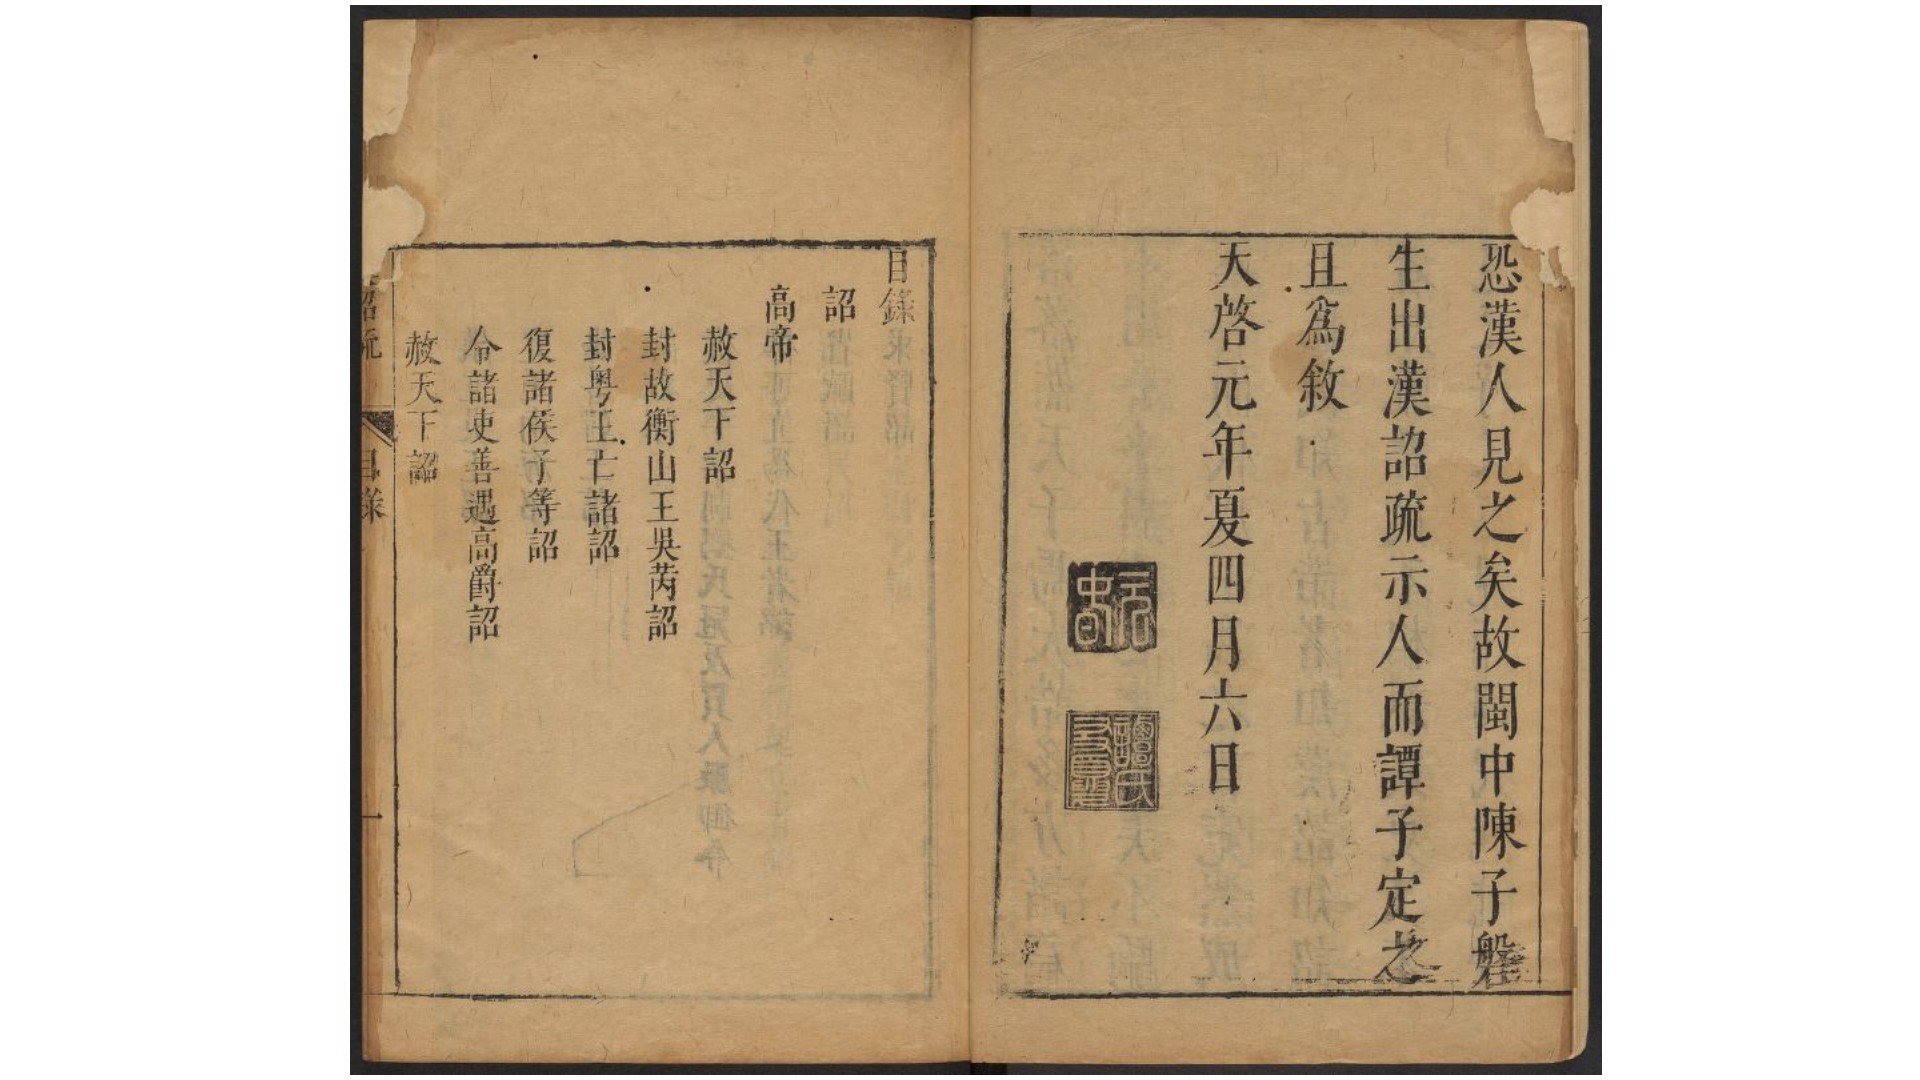 恐漢人見之矣故閩中陳子盤
生出漢詔疏示人而譚子定之
且爲敘
天啓元年夏四月六日
譚氏友夏
目錄
詔
高帝
赦天下詔
封故衡山王吳芮詔
封粤王亡諸詔
復諸侯子等詔
令諸吏善遇高爵詔
赦天下詔
詔疏
目錄
一